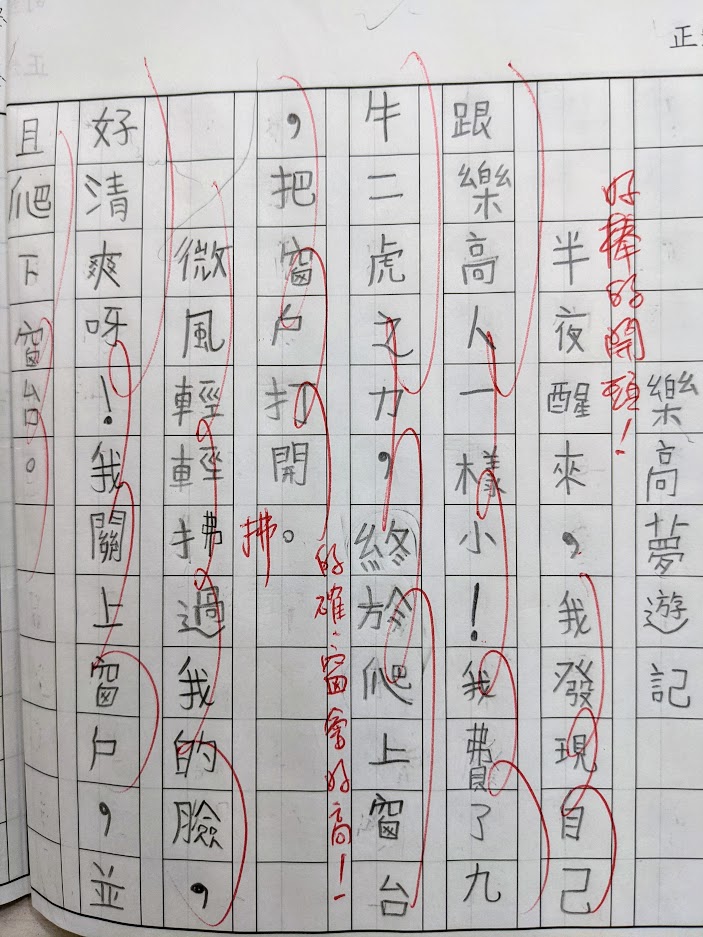 正
樂高夢遊記
好棒的開頭！
半夜醒來，我發現自己
跟樂高人一樣小！我費了九
牛二虎之力，終於爬上窗台
的確，窗會好高！
，把窗戶打開。
拂
微風輕輕拂過我的臉，
好清爽呀！我關上窗戶，並
且爬下窗台。